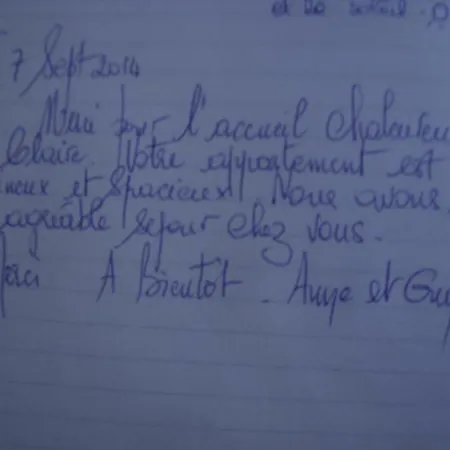 et
7 Sept 2014
Merci pour l'accueil chaleureu
Claire. Votre appartement est
neux et spacieux. Nous avons
agréable séjour chez vous.
A Bientôt. Anya et Gu